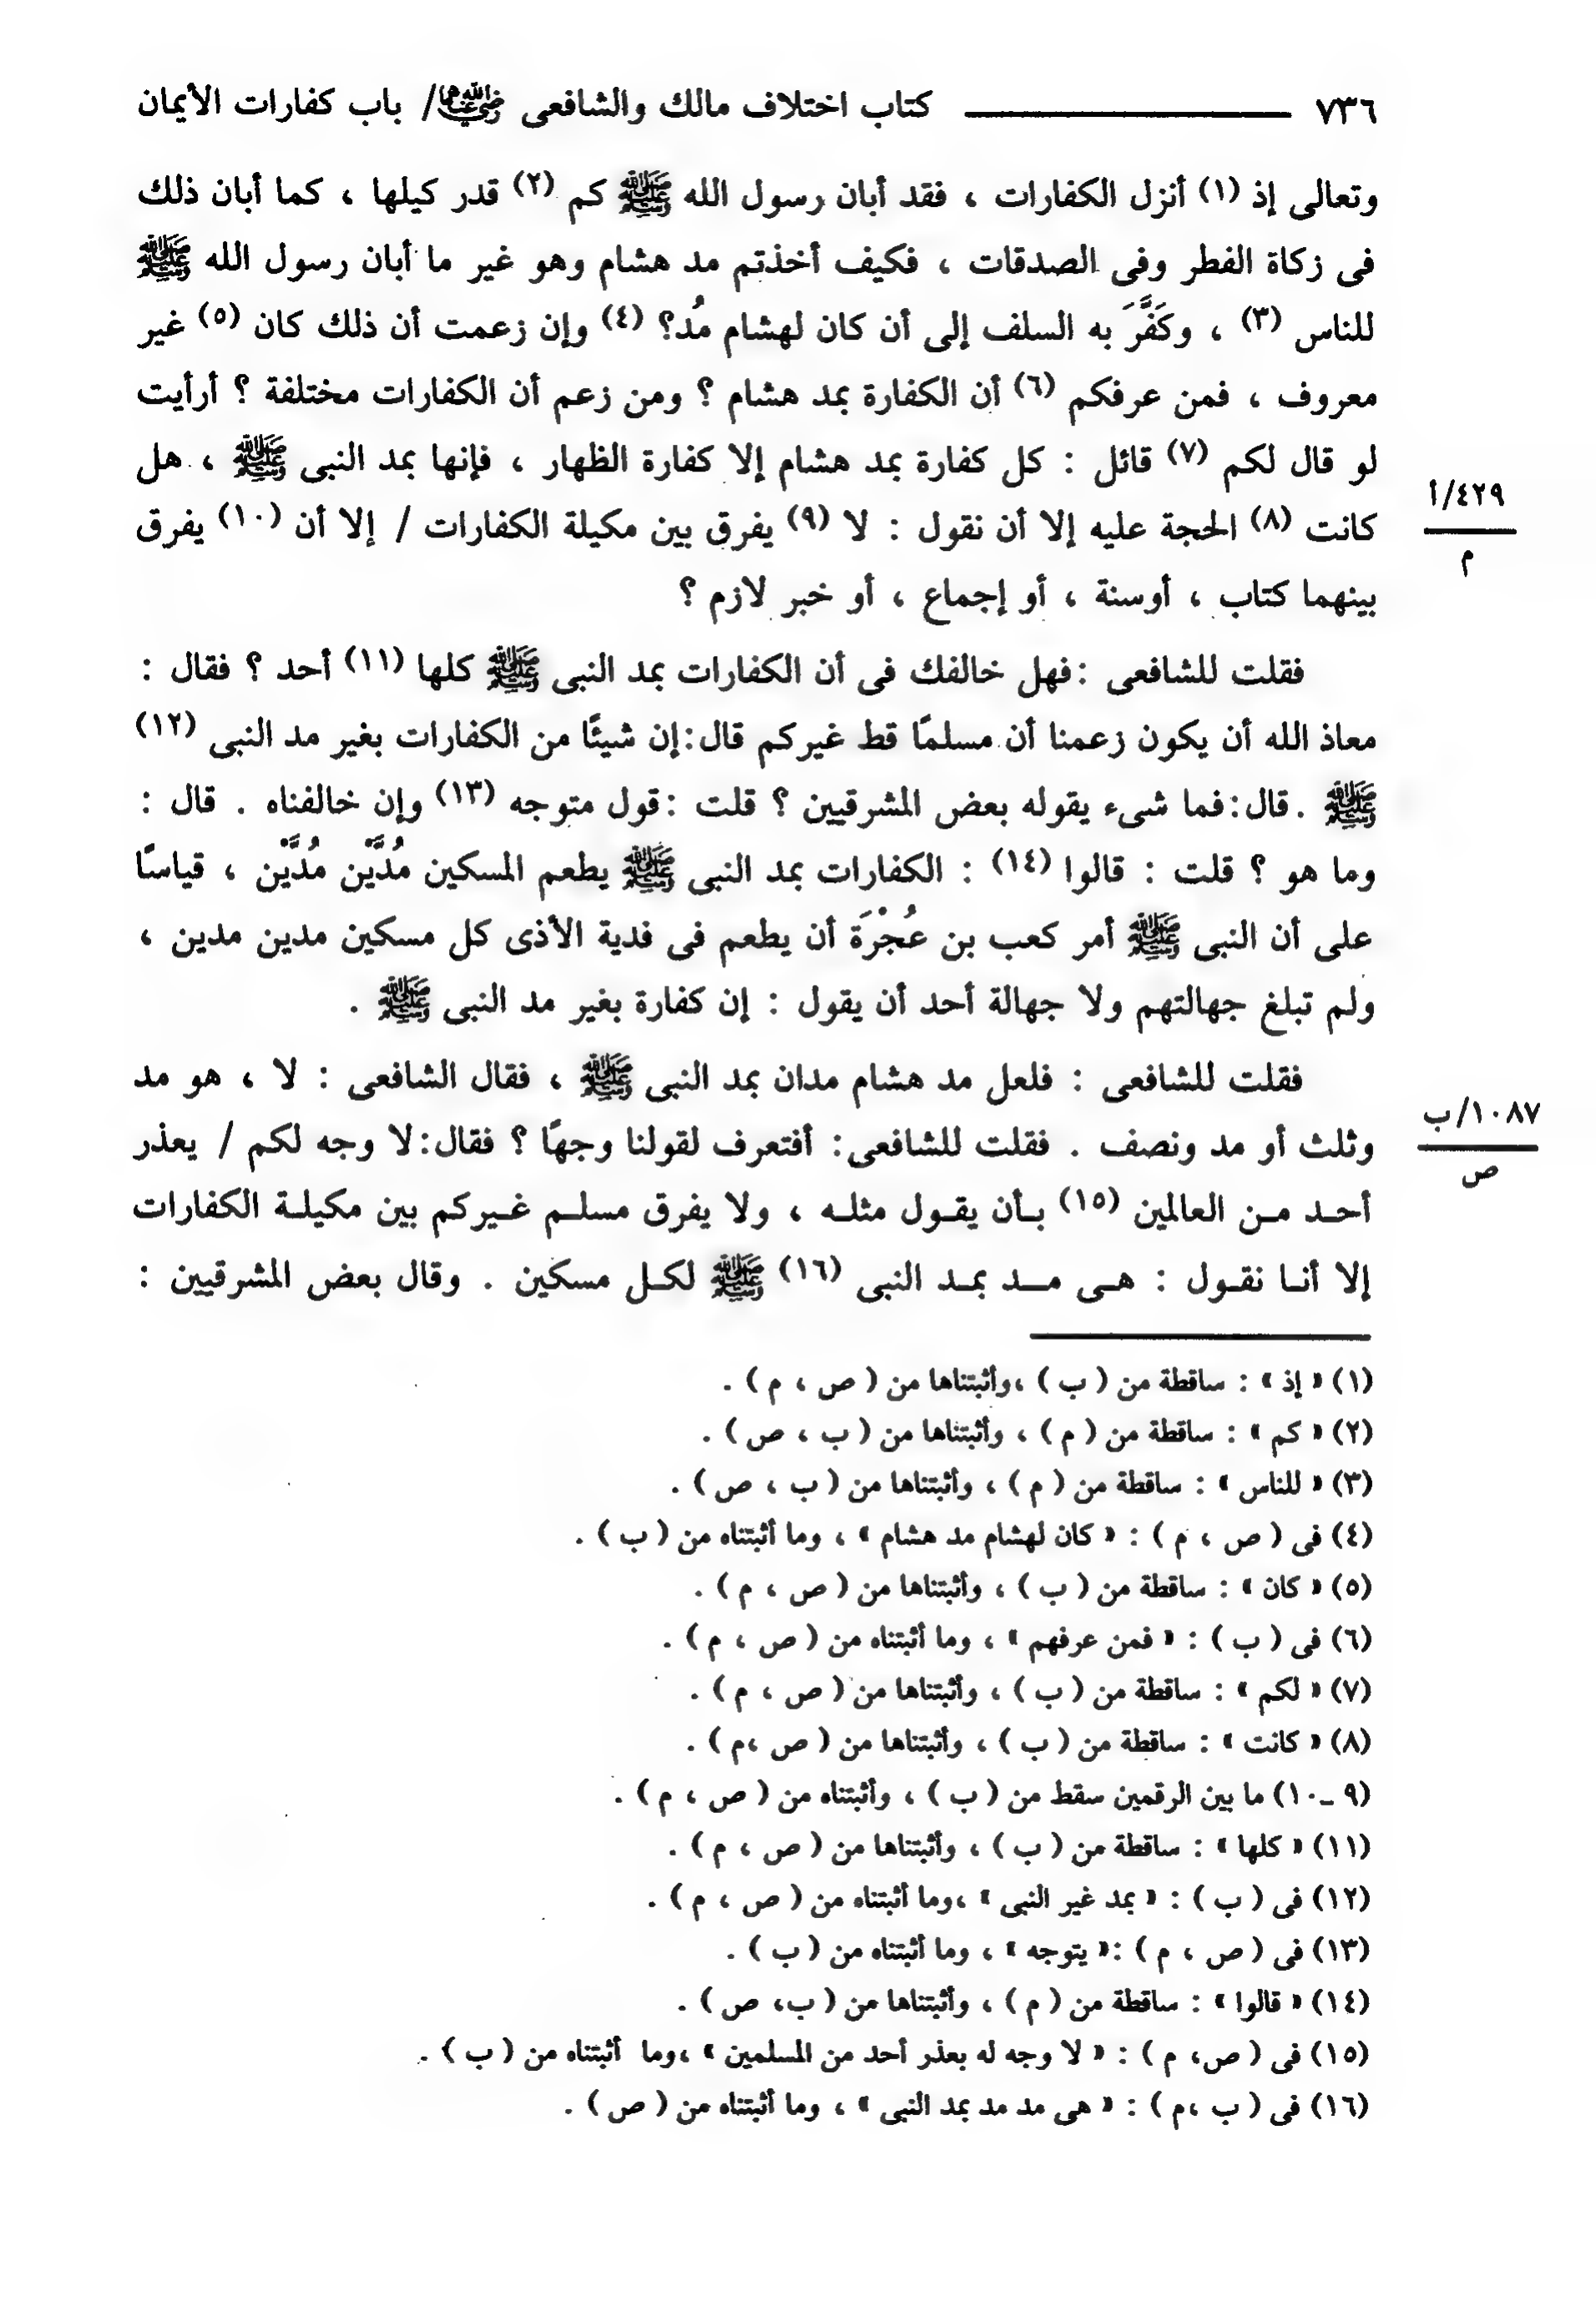 ٧٣٦ ــــــــــــ كتاب اختلاف مالك والشافعى رضي الله عنهما/ باب كفارات الأيمان
وتعالى إذ (١) أنزل الكفارات ، فقد أبان رسول الله ﷺ كم (٢) قدر كيلها ، كما أبان ذلك
فى زكاة الفطر وفى الصدقات ، فكيف أخذتم مد هشام وهو غير ما أبان رسول الله ﷺ
للناس (٣) ، وكَفَّرَ به السلف إلى أن كان لهشام مُد؟ (٤) وإن زعمت أن ذلك كان (٥) غير
معروف ، فمن عرفكم (٦) أن الكفارة بمد هشام ؟ ومن زعم أن الكفارات مختلفة ؟ أرأيت
لو قال لكم (٧) قائل : كل كفارة بمد هشام إلا كفارة الظهار ، فإنها بمد النبى ﷺ ، هل
كانت (٨) الحجة عليه إلا أن نقول : لا (٩) يفرق بين مكيلة الكفارات / إلا أن (١٠) يفرق
٤٢٩/أ
م
بينهما كتاب ، أوسنة ، أو إجماع ، أو خبر لازم ؟
فقلت للشافعى :فهل خالفك فى أن الكفارات بمد النبى ﷺ كلها (١١) أحد ؟ فقال :
معاذ الله أن يكون زعمنا أن مسلمًا قط غيركم قال:إن شيئًا من الكفارات بغير مد النبى (١٢)
ﷺ .قال:فما شىء يقوله بعض المشرقيين ؟ قلت :قول متوجه (١٣) وإن خالفناه . قال :
وما هو ؟ قلت : قالوا (١٤) : الكفارات بمد النبى ﷺ يطعم المسكين مُدَّيْن مُدَّيْن ، قياسًا
على أن النبى ﷺ أمر كعب بن عُجْرَة أن يطعم فى فدية الأذى كل مسكين مدين مدين ،
ولم تبلغ جهالتهم ولا جهالة أحد أن يقول : إن كفارة بغير مد النبى ﷺ .
فقلت للشافعى : فلعل مد هشام مدان بمد النبى ﷺ ، فقال الشافعى : لا ، هو مد
وثلث أو مد ونصف . فقلت للشافعى: أفتعرف لقولنا وجهًا ؟ فقال:لا وجه لكم / يعذر
١٠٨٧/ب
ص
أحـد مـن العالمين (١٥) بـأن يقـول مثلـه ، ولا يفرق مسلـم غـيركم بين مكيلـة الكفارات
إلا أنـا نقـول : هـى مــد بمـد النبى (١٦) ﷺ لكـل مسكين . وقال بعض المشرقيين :
(١) « إذ » : ساقطة من ( ب ) ،وأثبتناها من ( ص ، م ) .
(٢) « كم » : ساقطة من ( م ) ، وأثبتناها من ( ب ، ص ) .
(٣) « للناس » : ساقطة من ( م ) ، وأثبتناها من ( ب ، ص ) .
(٤) فى ( ص ، م ) : « كان لهشام مد هشام » ، وما أثبتناه من ( ب ) .
(٥) « كان » : ساقطة من ( ب ) ، وأثبتناها من ( ص ، م ) .
(٦) فى ( ب ) : « فمن عرفهم » ، وما أثبتناه من ( ص ، م ) .
(٧) « لكم » : ساقطة من ( ب ) ، وأثبتناها من ( ص ، م ) .
(٨) « كانت » : ساقطة من ( ب ) ، وأثبتناها من ( ص ،م ) .
(٩ ـ١٠) ما بين الرقمين سقط من ( ب ) ، وأثبتناه من ( ص ، م ) .
(١١) « كلها » : ساقطة من ( ب ) ، وأثبتناها من ( ص ، م ) .
(١٢) فى ( ب ) : « بمد غير النبى » ،وما أثبتناه من ( ص ، م ) .
(١٣) فى ( ص ، م ) :« يتوجه » ، وما أثبتناه من ( ب ) .
(١٤) « قالوا » : ساقطة من ( م ) ، وأثبتناها من ( ب، ص ) .
(١٥) فى ( ص، م ) : « لا وجه له بعذر أحد من المسلمين » ،وما أثبتناه من ( ب ) .
(١٦) فى ( ب ،م ) : « هى مد مد بمد النبى » ، وما أثبتناه من ( ص ) .